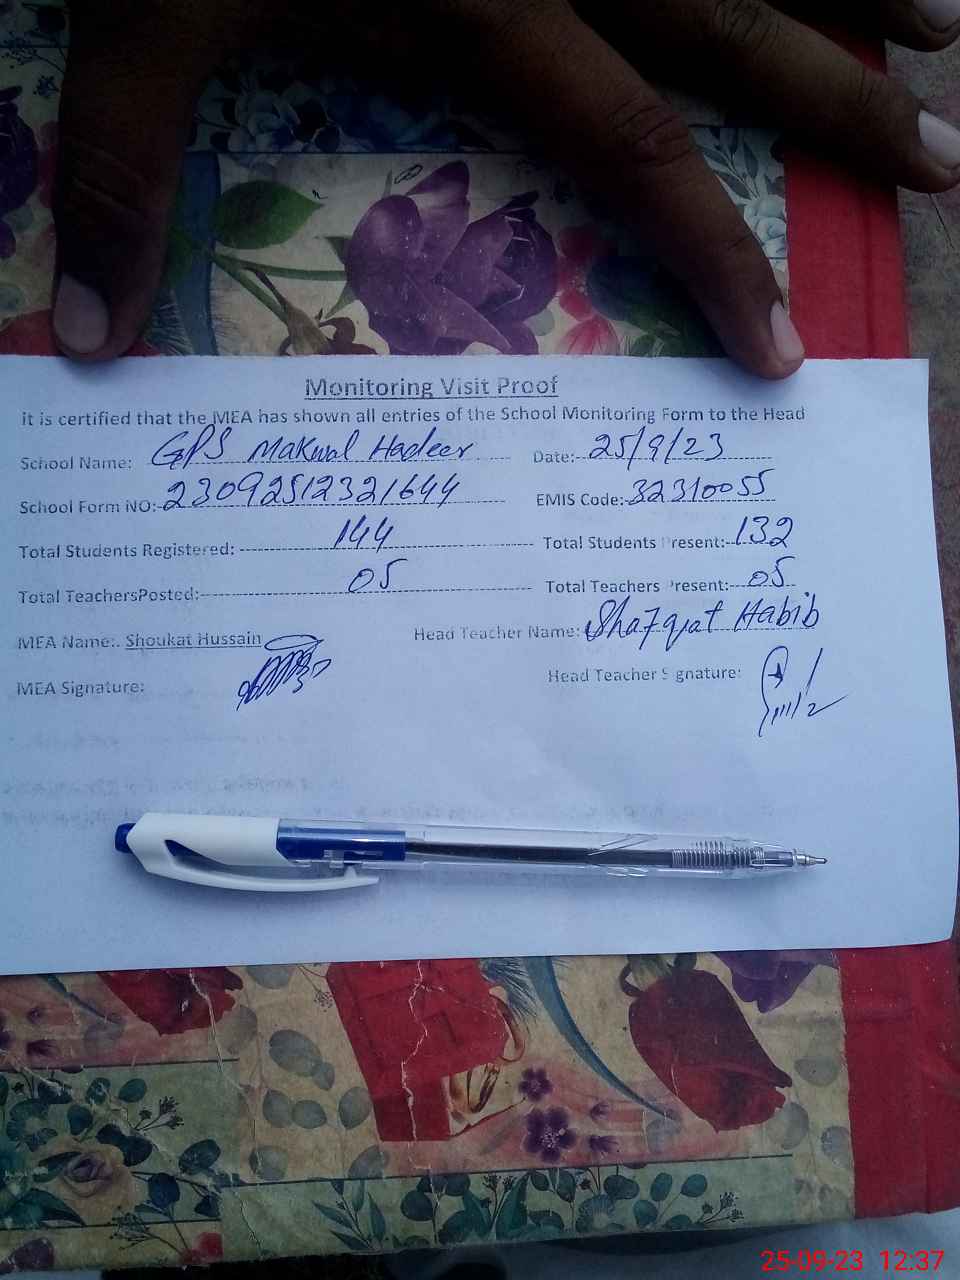 Monitoring Visit Proof
it is certified that the MEA has shown all entries of the School Monitoring Form to the Head
School Name: GPS Makwal Hadeer Date:- 25/9/23
School Form NO:- 23092512321644 EMIS Code:- 32310055
Total Students Registered: 144 Total Students Present:- 132
Total TeachersPosted:- 05 Total Teachers Present:- 05
MEA Name:. Shoukat Hussain Head Teacher Name: Shafqat Habib
MEA Signature: Head Teacher Signature:
25-09-23 12:37